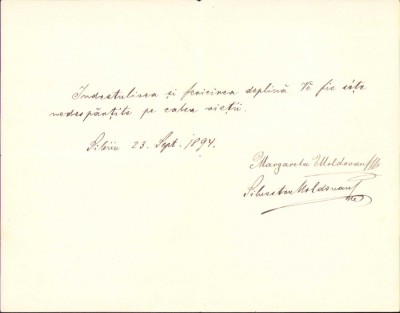 Indestulirea și fericirea deplină Ve fie soțe
nedespărțite pe calea vieții.
Sibiiu 23. Sept. 1894.
Margareta Moldovan
Silvestru Moldovan